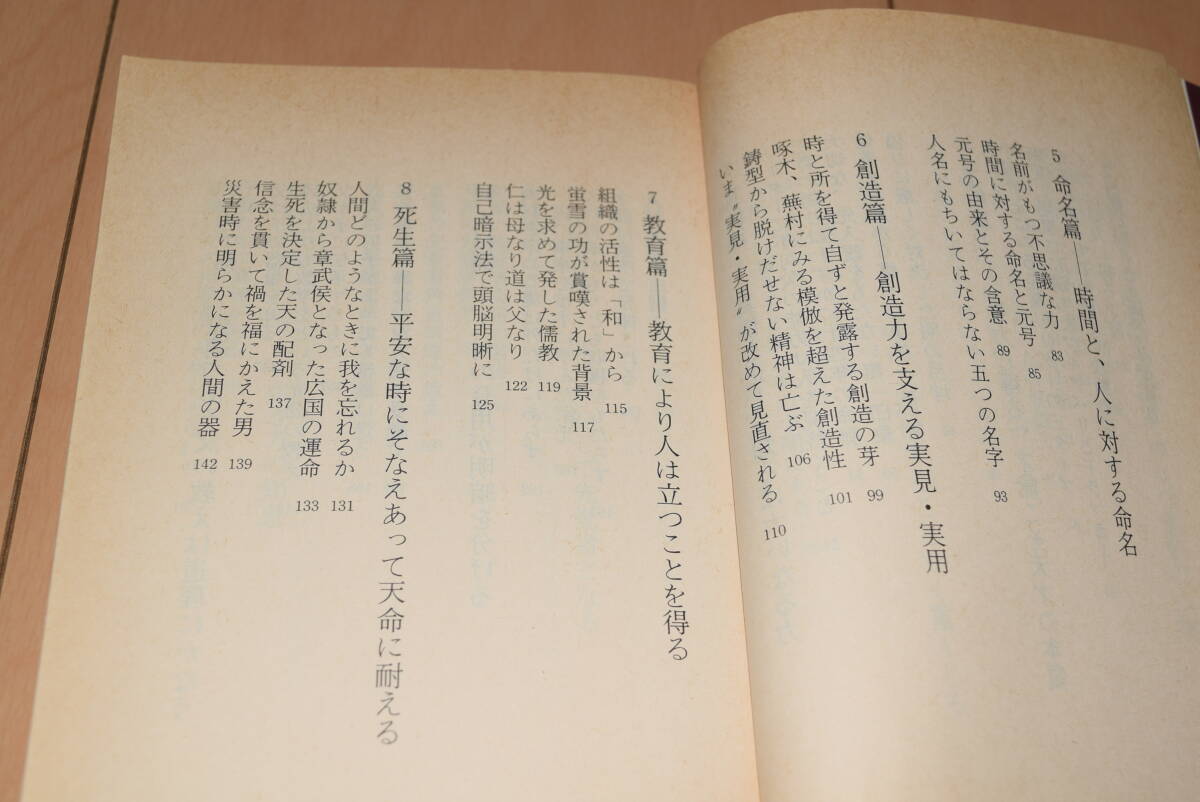 5 命名篇——時間と、人に対する命名
名前がもつ不思議な力 83
時間に対する命名と元号 85
元号の由来とその含意 89
人名にもちいてはならない五つの名字 93
6 創造篇——創造力を支える実見・実用
時と所を得て自ずと発露する創造の芽 99
啄木、蕪村にみる模倣を超えた創造性 101
鋳型から脱けだせない精神は亡ぶ 106
いま〝実見・実用〟が改めて見直される 110
7 教育篇——教育により人は立つことを得る
組織の活性は「和」から 115
蛍雪の功が賞嘆された背景 117
光を求めて発した儒教 119
仁は母なり道は父なり 122
自己暗示法で頭脳明晰に 125
8 死生篇——平安な時にそなえあって天命に耐える
人間どのようなときに我を忘れるか 131
奴隷から章武侯となった広国の運命 133
生死を決定した天の配剤 137
信念を貫いて禍を福にかえた男 139
災害時に明らかになる人間の器 142